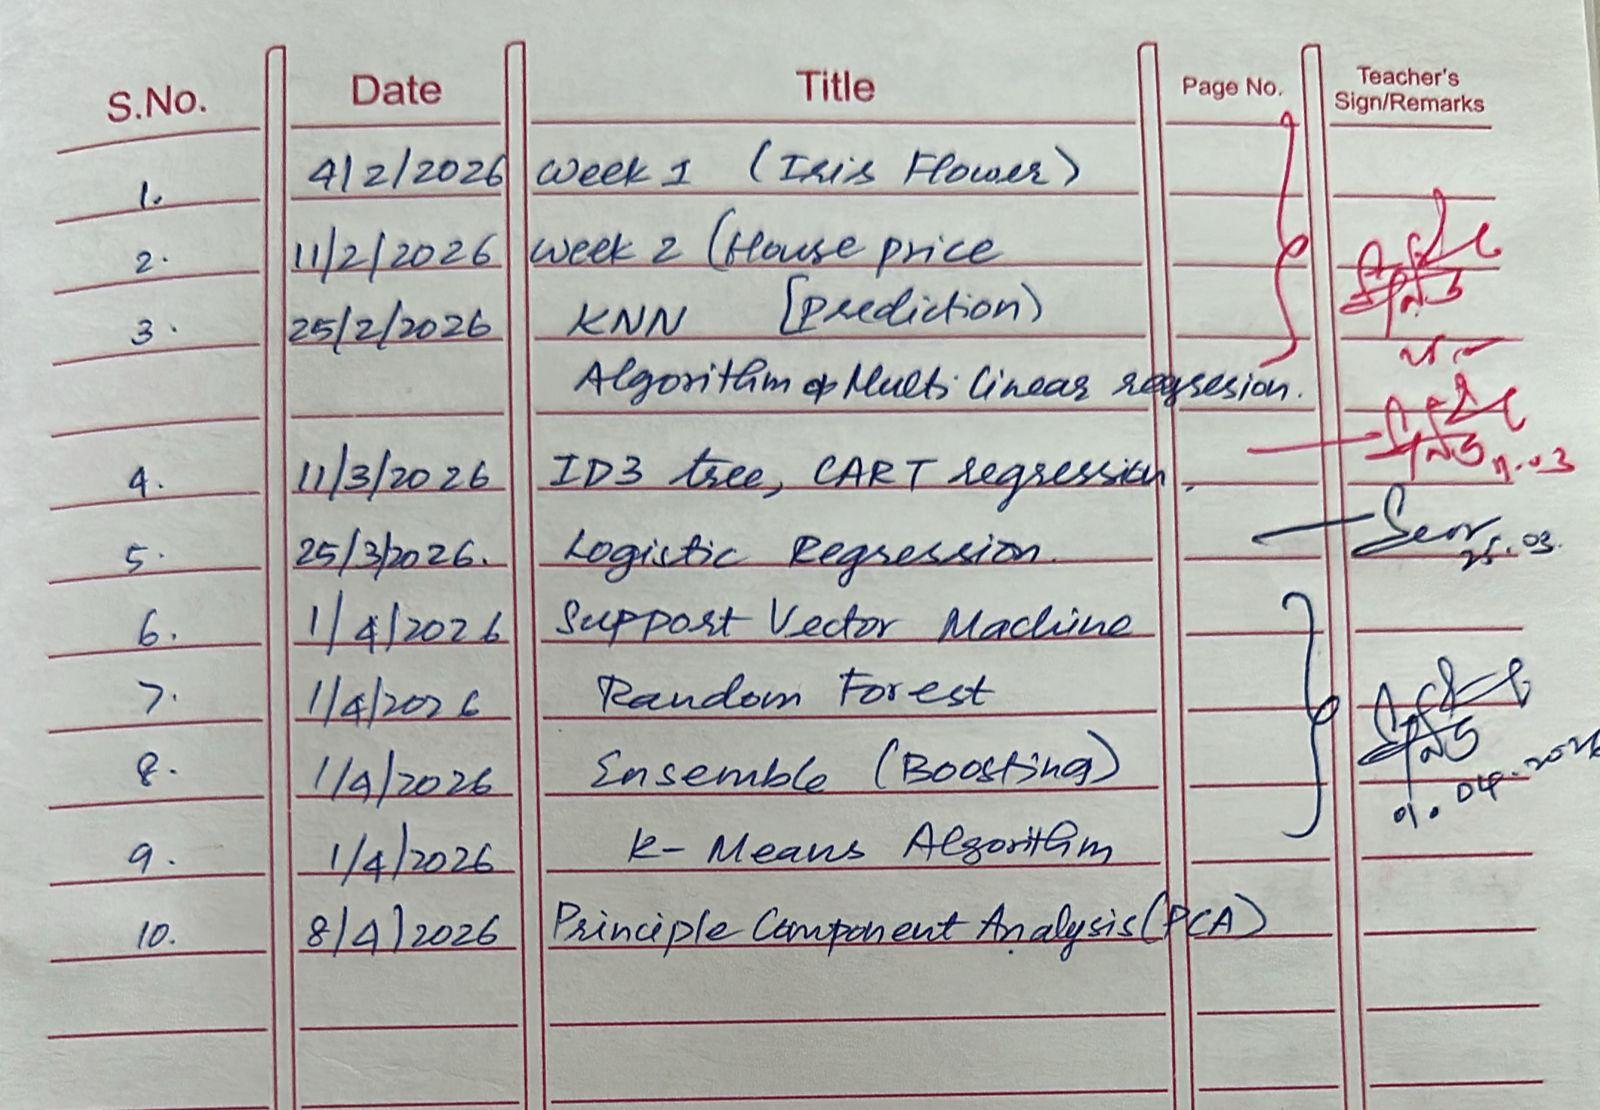 S.No. Date Title Page No. Teacher's Sign/Remarks
1. 4/2/2026 Week 1 (Iris Flower)
2. 11/2/2026 Week 2 (House price
[Prediction)
3. 25/2/2026 KNN
Algorithm & Multi linear regresion.
4. 11/3/2026 ID3 tree, CART regression.
5. 25/3/2026. Logistic Regression.
25.03.
6. 1/4/2026 Support Vector Machine
7. 1/4/2026 Random Forest
8. 1/4/2026 Ensemble (Boosting)
01.04.2026
9. 1/4/2026 K- Means Algorithm
10. 8/4/2026 Principle Component Analysis (PCA)